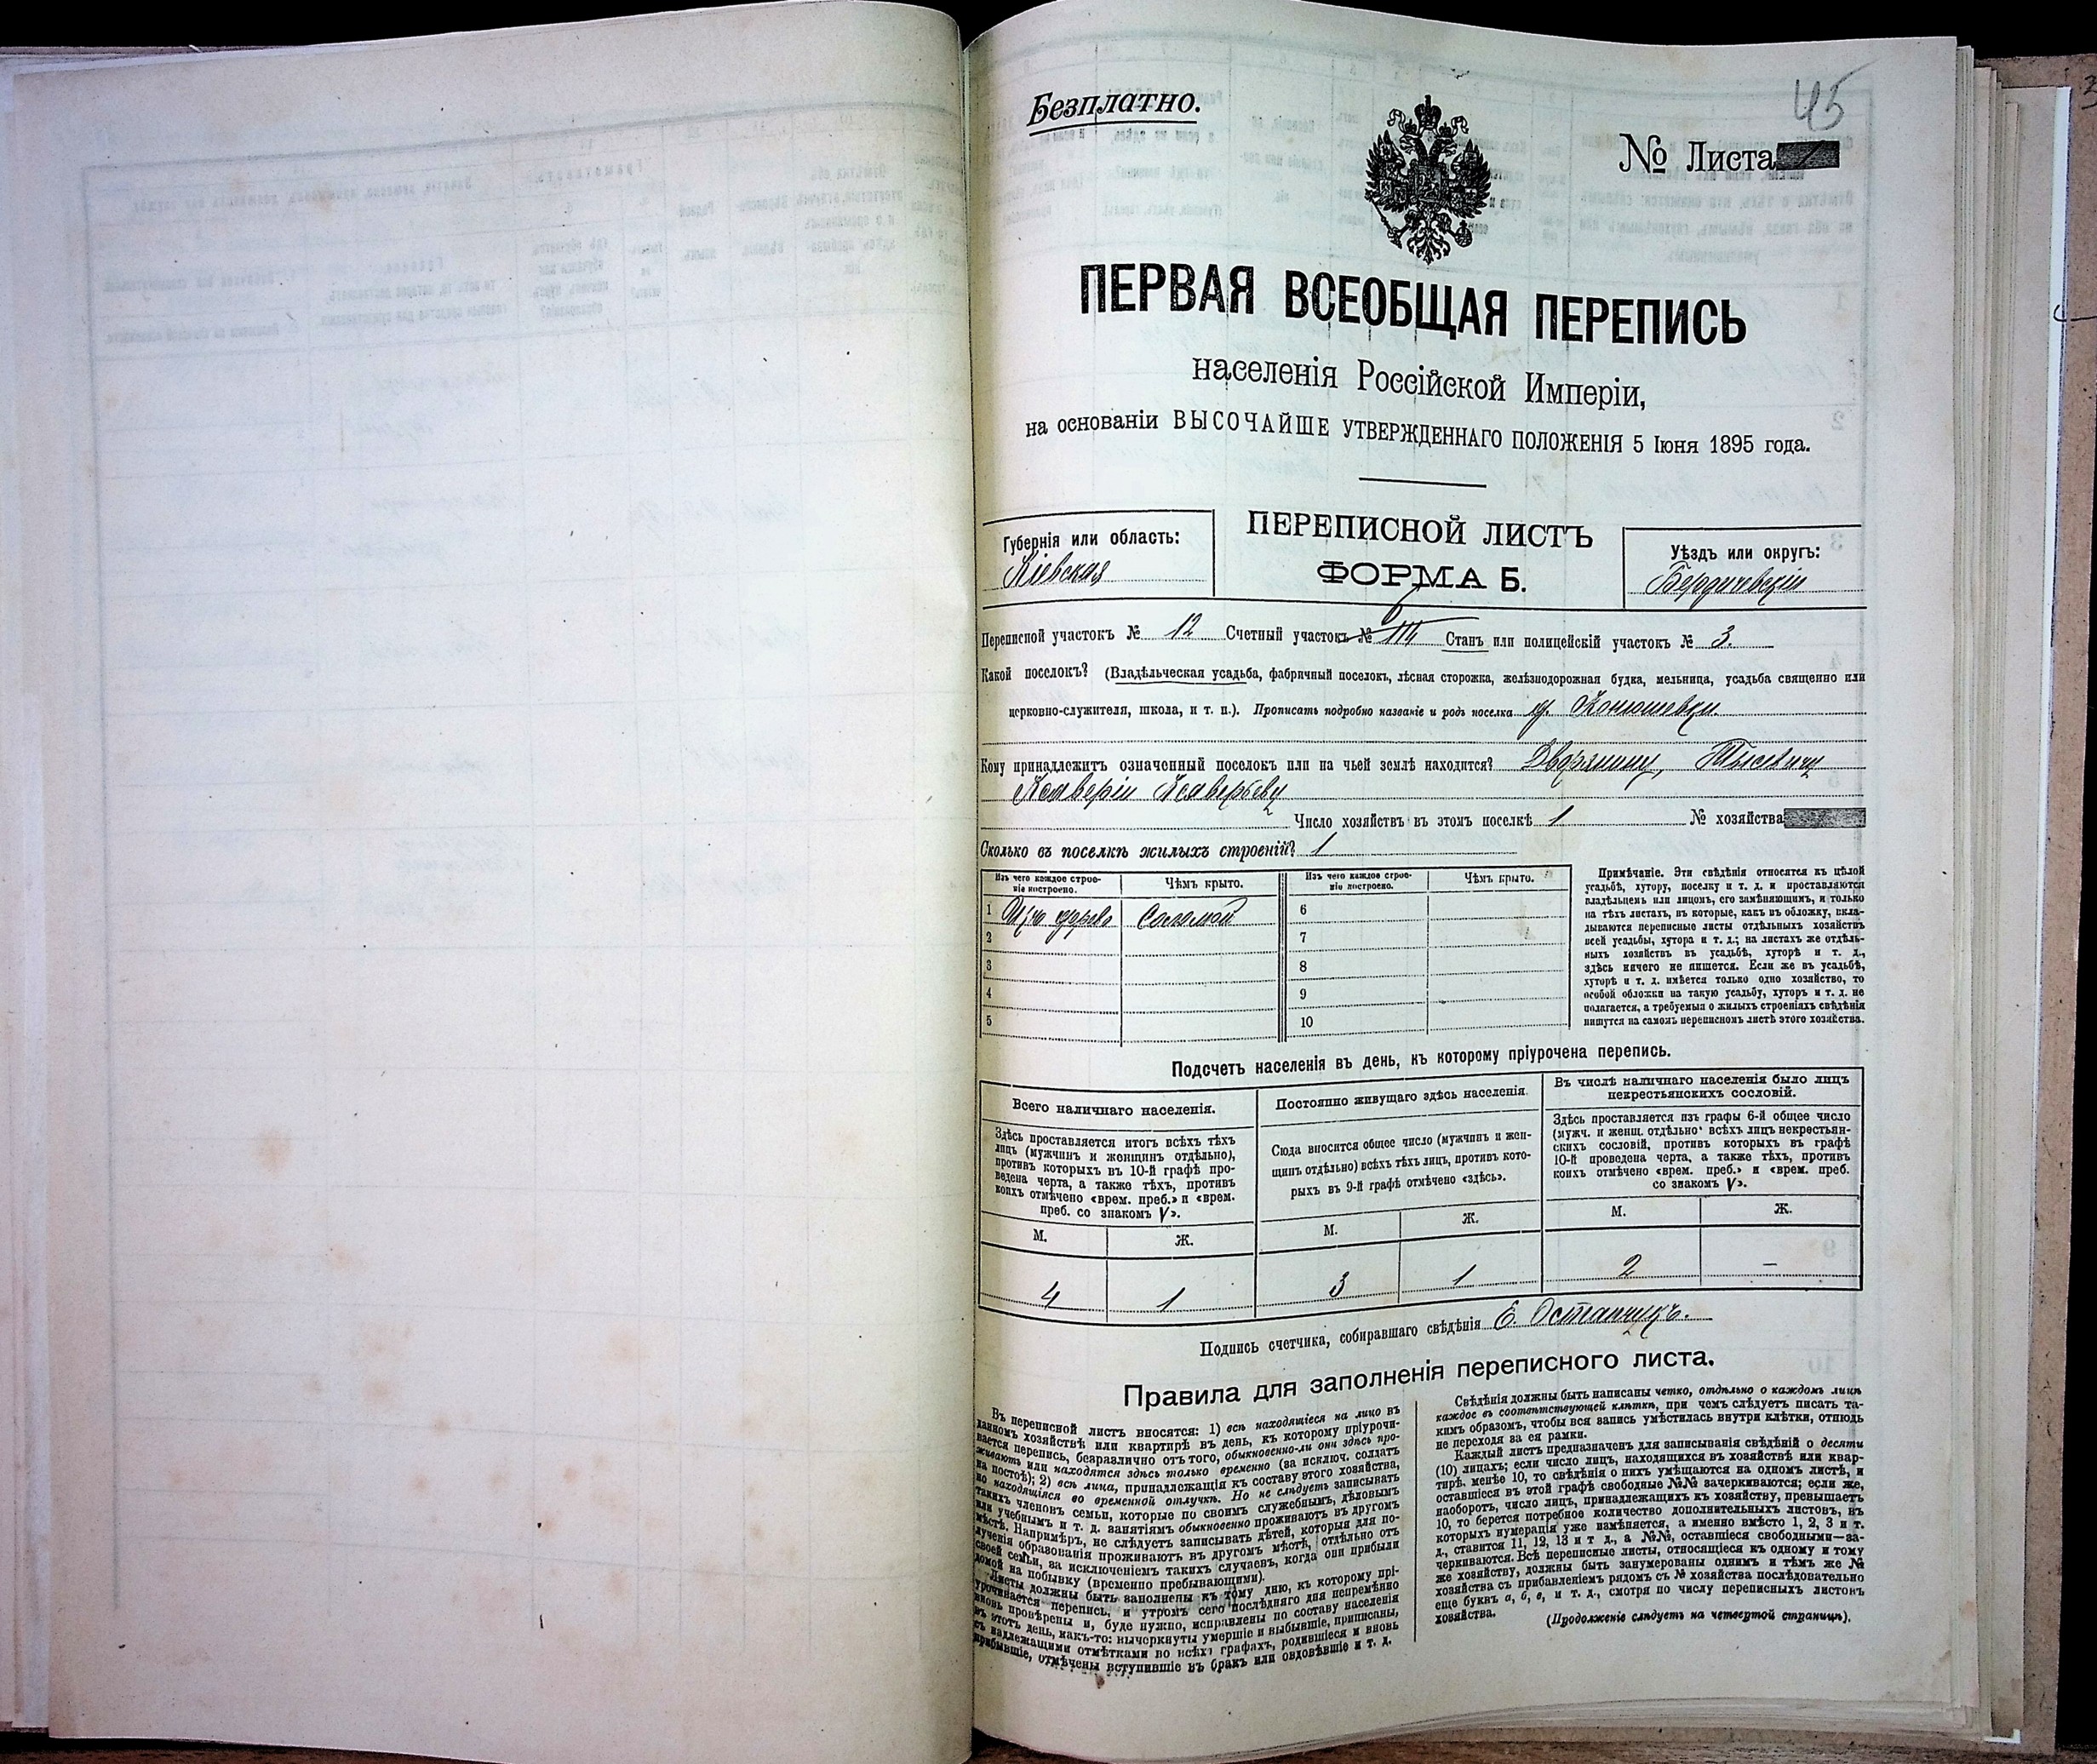 Безплатно.
45
№ Листа
ПЕРВАЯ ВСЕОБЩАЯ ПЕРЕПИСЬ
населенія Россійской Имперіи,
на основаніи ВЫСОЧАЙШЕ УТВЕРЖДЕННАГО ПОЛОЖЕНІЯ 5 Іюня 1895 года.
Губернія или область:
Кіевская
ПЕРЕПИСНОЙ ЛИСТЪ
ФОРМА Б.
Уѣздъ или округъ:
Бердичевскій
Переписной участокъ № 12 Счетный участокъ № 6 Станъ или полицейскій участокъ № 3.
Какой поселокъ? (Владѣльческая усадьба, фабричный поселокъ, лѣсная сторожка, желѣзнодорожная будка, мельница, усадьба священно или
церковно-служителя, школа, и т. п.). Прописать подробно названіе и родъ поселка
Кому принадлежитъ означенный поселокъ или на чьей землѣ находится? Дворянину,
Ксаверію Ксаверьеву
Число хозяйствъ въ этомъ поселкѣ 1 № хозяйства
Сколько въ поселкѣ жилыхъ строеній? 1
Изъ чего каждое строе-
ніе построено.
Чѣмъ крыто.
Изъ чего каждое строе-
ніе построено.
Чѣмъ крыто.
1 Изъ дерева Соломой
2
3
4
5
6
7
8
9
10
Примѣчаніе. Эти свѣдѣнія относятся къ цѣлой
усадьбѣ, хутору, поселку и т. д. и проставляются
владѣльцемъ или лицомъ, его замѣняющимъ, и только
на тѣхъ листахъ, въ которые, какъ въ обложку, вкла-
дываются переписные листы отдѣльныхъ хозяйствъ
всей усадьбы, хутора и т. д.; на листахъ же отдѣль-
ныхъ хозяйствъ въ усадьбѣ, хуторѣ и т. д.,
здѣсь ничего не пишется. Если же въ усадьбѣ,
хуторѣ и т. д. имѣется только одно хозяйство, то
особой обложки на такую усадьбу, хуторъ и т. д. не
полагается, а требуемыя о жилыхъ строеніяхъ свѣдѣнія
пишутся на самомъ переписномъ листѣ этого хозяйства.
Подсчетъ населенія въ день, къ которому пріурочена перепись.
Всего наличнаго населенія.
Здѣсь проставляется итогъ всѣхъ тѣхъ
лицъ (мужчинъ и женщинъ отдѣльно),
противъ которыхъ въ 10-й графѣ про-
ведена черта, а также тѣхъ, противъ
коихъ отмѣчено «врем. преб.» и «врем.
преб. со знакомъ V».
М. Ж.
4 1
Постоянно живущаго здѣсь населенія.
Сюда вносится общее число (мужчинъ и жен-
щинъ отдѣльно) всѣхъ тѣхъ лицъ, противъ кото-
рыхъ въ 9-й графѣ отмѣчено «здѣсь».
М. Ж.
3 1
Въ числѣ наличнаго населенія было лицъ
некрестьянскихъ сословій.
Здѣсь проставляется изъ графы 6-й общее число
(мужч. и женщ. отдѣльно) всѣхъ лицъ некрестьян-
скихъ сословій, противъ которыхъ въ графѣ
10-й проведена черта, а также тѣхъ, противъ
коихъ отмѣчено «врем. преб.» и «врем. преб.
со знакомъ V».
М. Ж.
2 —
Подпись счетчика, собиравшаго свѣдѣнія Е. Остапчукъ.
Правила для заполненія переписного листа.
Въ переписной листъ вносятся: 1) всѣ находящіеся на лицо въ
данномъ хозяйствѣ или квартирѣ въ день, къ которому пріурочи-
вается перепись, безразлично отъ того, обыкновенно-ли они здѣсь про-
живаютъ или находятся здѣсь только временно (за исключ. солдатъ
на постоѣ); 2) всѣ лица, принадлежащія къ составу этого хозяйства,
но находящіяся во временной отлучкѣ. Но не слѣдуетъ записывать
такихъ членовъ семьи, которые по своимъ служебнымъ, дѣловымъ
или учебнымъ и т. д. занятіямъ обыкновенно проживаютъ въ другомъ
мѣстѣ. Напримѣръ, не слѣдуетъ записывать дѣтей, которыя для по-
лученія образованія проживаютъ въ другомъ мѣстѣ, отдѣльно отъ
своей семьи, за исключеніемъ такихъ случаевъ, когда они прибыли
домой на побывку (временно пребывающими).
Листы должны быть заполнены къ тому дню, къ которому прі-
урочивается перепись, и утромъ сего послѣдняго дня непремѣнно
вновь провѣрены и, буде нужно, исправлены по составу населенія
въ этотъ день, какъ-то: вычеркнуты умершіе и выбывшіе, приписаны,
съ надлежащими отмѣтками во всѣхъ графахъ, родившіеся и вновь
прибывшіе, отмѣчены вступившіе въ бракъ или овдовѣвшіе и т. д.
Свѣдѣнія должны быть написаны четко, отдѣльно о каждомъ лицѣ
каждое въ соотвѣтствующей клѣткѣ, при чемъ слѣдуетъ писать та-
кимъ образомъ, чтобы вся запись умѣстилась внутри клѣтки, отнюдь
не переходя за ея рамки.
Каждый листъ предназначенъ для записыванія свѣдѣній о десяти
(10) лицахъ; если число лицъ, находящихся въ хозяйствѣ или квар-
тирѣ, менѣе 10, то свѣдѣнія о нихъ умѣщаются на одномъ листѣ, и
оставшіеся въ этой графѣ свободные №№ зачеркиваются; если же,
наоборотъ, число лицъ, принадлежащихъ къ хозяйству, превышаетъ
10, то берется потребное количество дополнительныхъ листовъ, въ
которыхъ нумерація уже измѣняется, а именно вмѣсто 1, 2, 3 и т.
д., ставится 11, 12, 13 и т д., а №№, оставшіеся свободными—за-
черкиваются. Всѣ переписные листы, относящіеся къ одному и тому
же хозяйству, должны быть занумерованы однимъ и тѣмъ же №
хозяйства съ прибавленіемъ рядомъ съ № хозяйства послѣдовательно
еще буквъ а, б, в, и т. д., смотря по числу переписныхъ листовъ
хозяйства.
(Продолженіе слѣдуетъ на четвертой страницѣ).